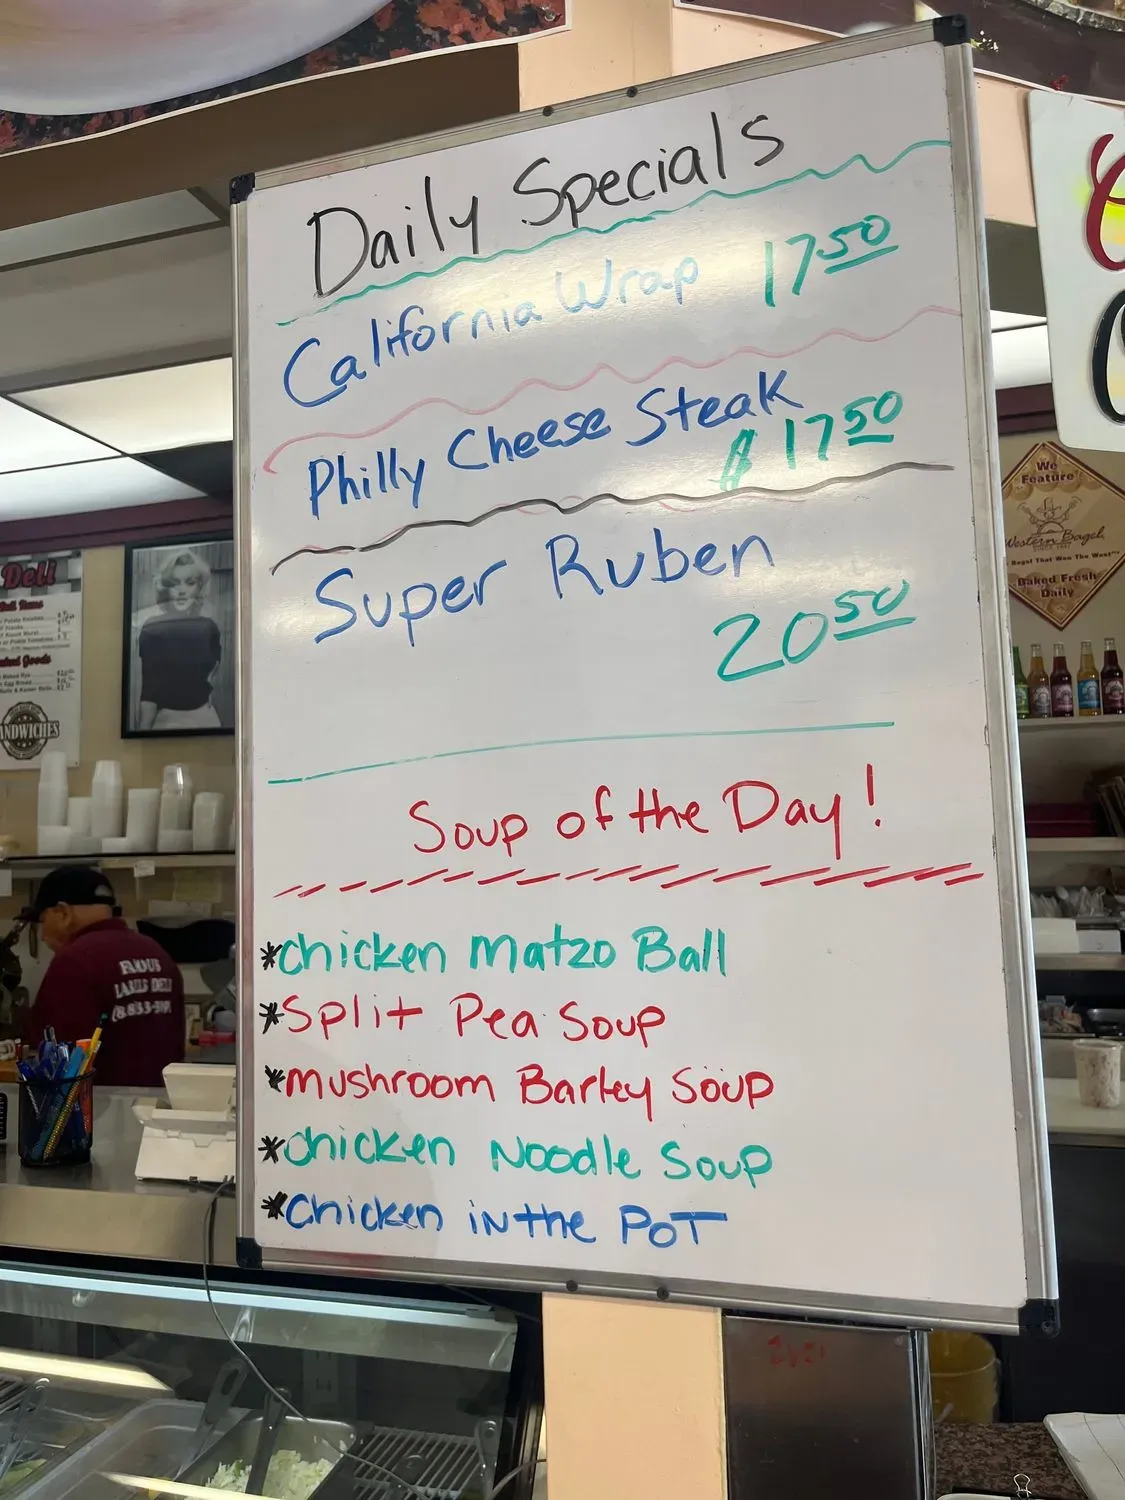 Daily Specials
California Wrap 17.50
Philly Cheese Steak
$ 17.50
Super Ruben
20.50
Soup of the Day!
*chicken Matzo Ball
*Split Pea Soup
*mushroom Barley Soup
*chicken Noodle Soup
*chicken in the POT
We
Feature
Western Bagel
Bagel That Won The West
Baked Fresh
Daily
Deli
Baked Goods
SANDWICHES
FAMOUS
LAKES DELI